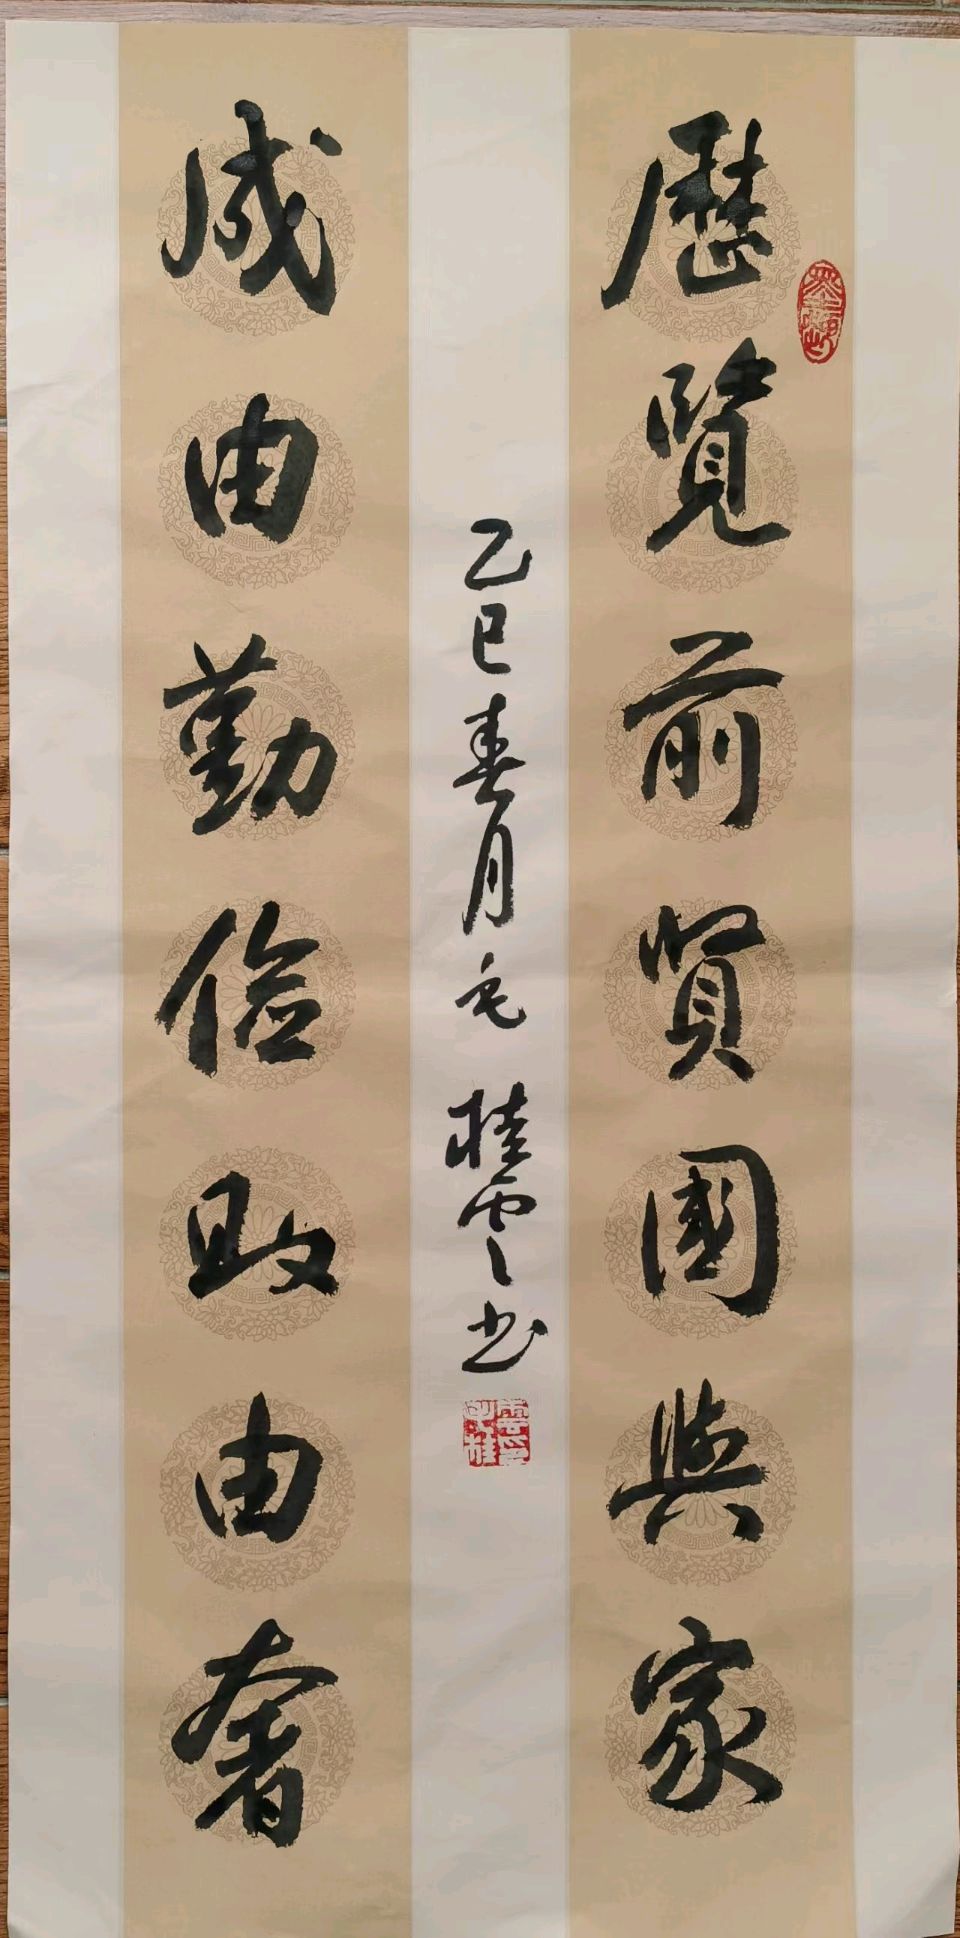 歷覽前賢國與家
成由勤儉敗由奢
乙巳春月毛桂雲书
雲印
毛桂